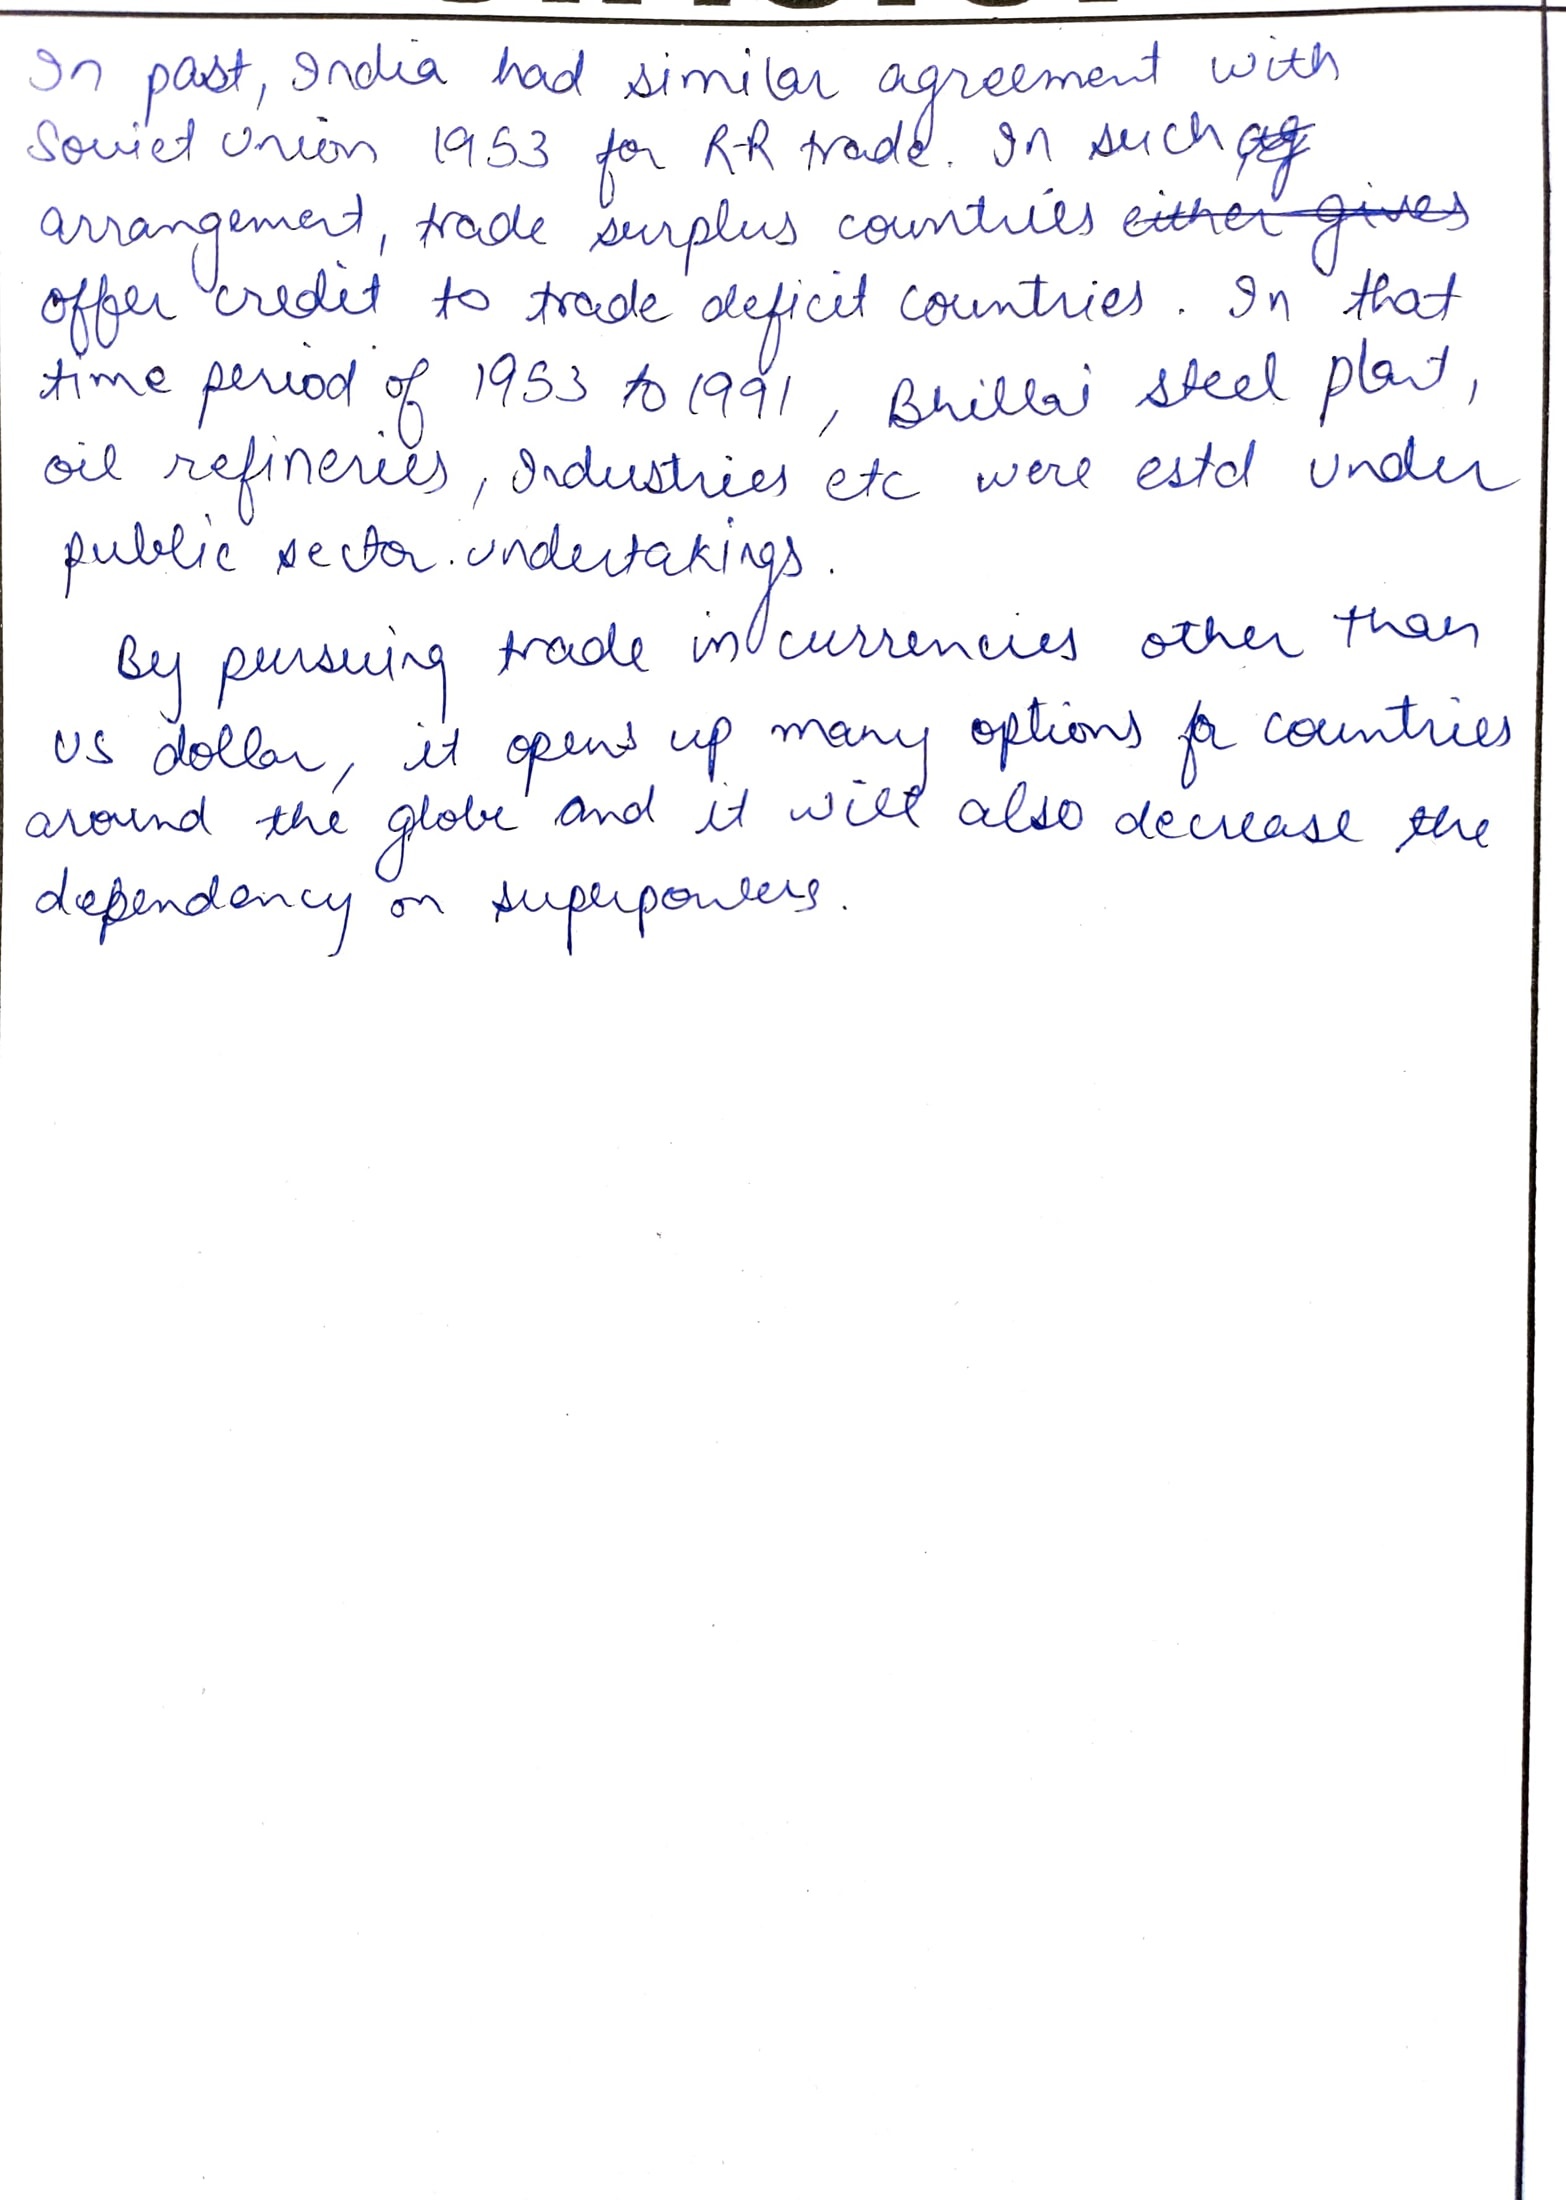 In past, India had similar agreement with
Soviet Union 1953 for R-R trade. In such
arrangement, trade surplus countries either gives
offer credit to trade deficit countries. In that
time period of 1953 to 1991, Bhillai steel plant,
oil refineries, Industries etc were estd under
public sector undertakings.
By pursuing trade in currencies other than
US dollar, it opens up many options for countries
around the globe and it will also decrease the
dependency on superpowers.